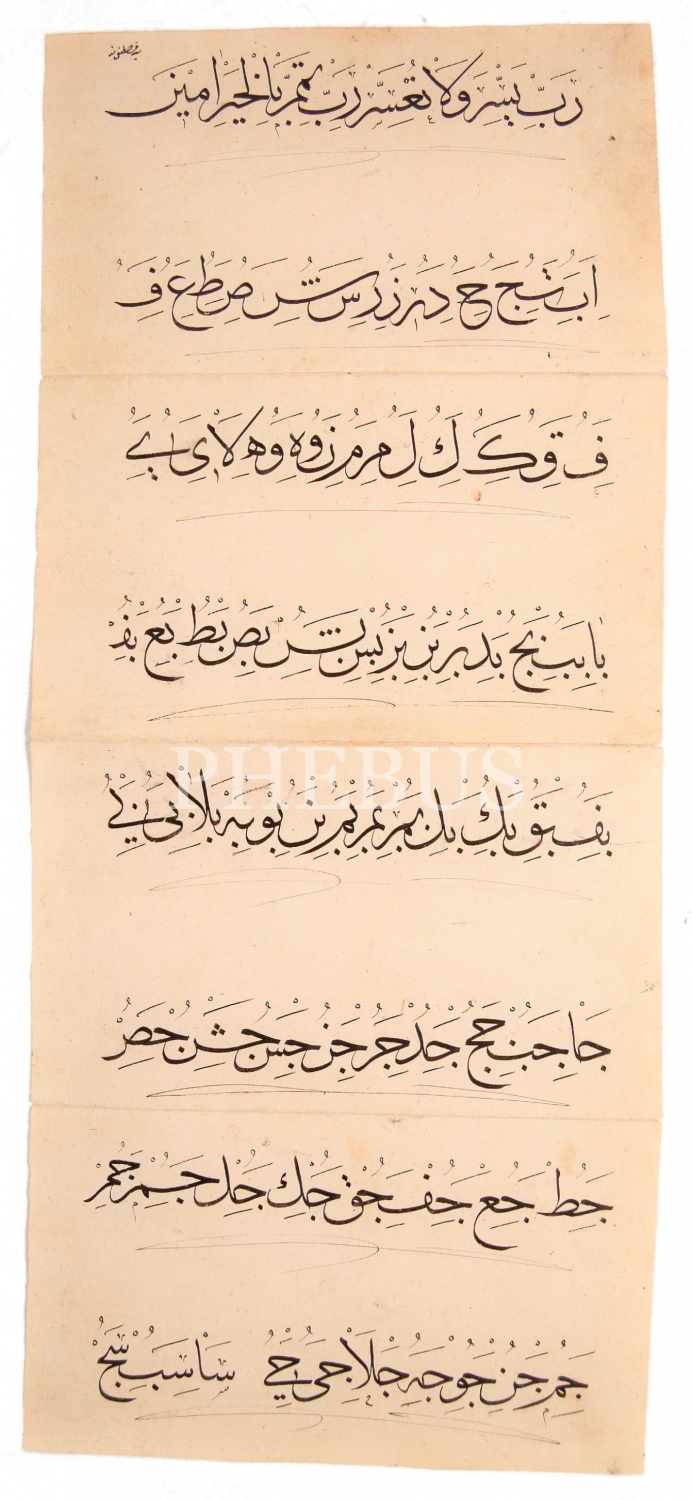 رَبِّ يَسِّرْ وَلَا تُعَسِّرْ رَبِّ تَمِّمْ بِالْخَيْرِ اٰمِينَ
ا ب ج ح د ر ز س ش ص ط ع ف
ف ق ك ك ل م م ن و ه و ه لا ى ے
با بب بج بد بر بز بس بش بص بط بع بف
PHEBUS
بف بق بك بل بم بم بم بن بو به بلا بى بے
جا جب جج جد جر جز جس جش جص
جط جع جف جق جك جل جم جم
جم جن جو جه جلا جى جے سا سب سج